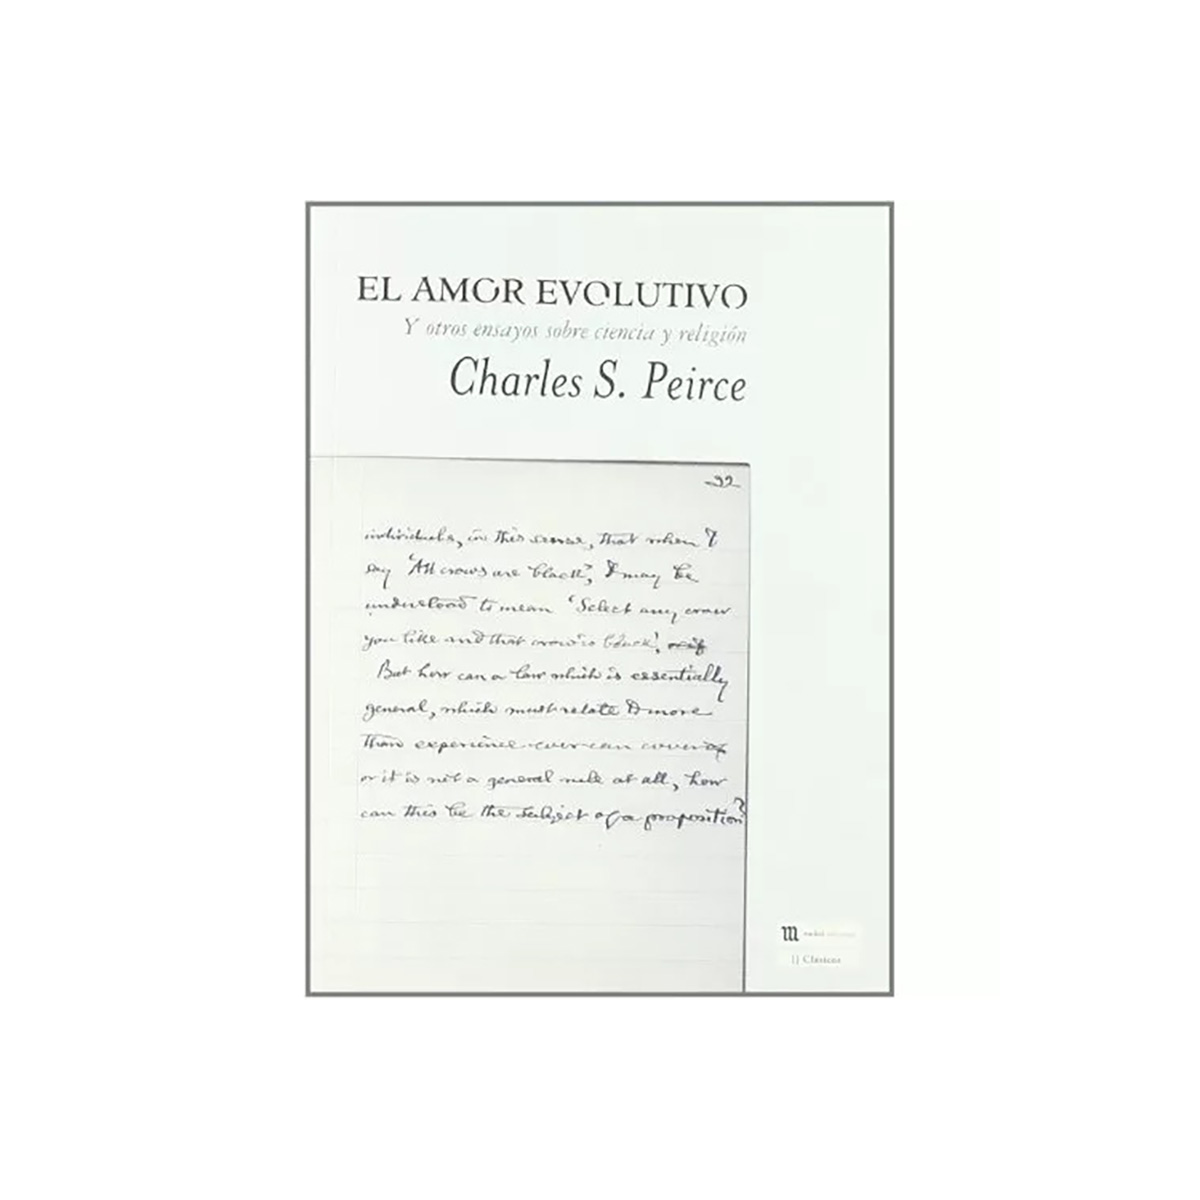 EL AMOR EVOLUTIVO
Y otros ensayos sobre ciencia y religión
Charles S. Peirce
32
individuals, in this sense, that when I
say 'All crows are black', I may be
understood to mean 'Select any crow
you like and that crow is black',
But how can a law which is essentially
general, which must relate to more
than experience ever can cover
or it is not a general rule at all, how
can this be the subject of a proposition?
Clásicos